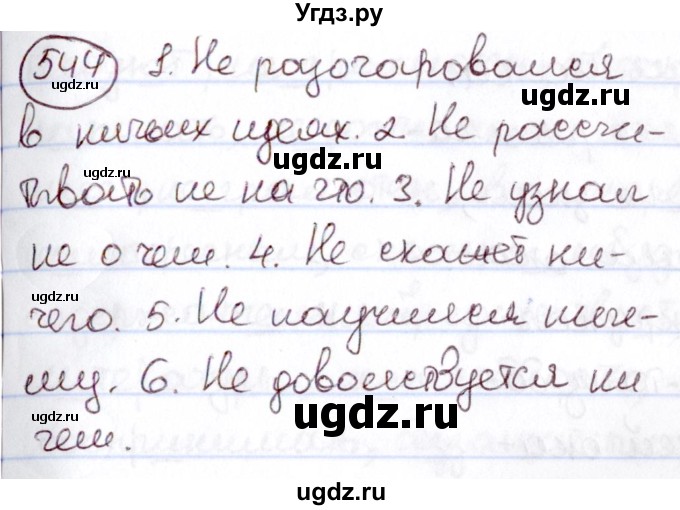 Угдз.ру
544 1. Не разочаровался
в ничьих идеях. 2. Не рассчи-
тывать не на что. 3. Не узнал
не о чем. 4. Не скажет ни-
чего. 5. Не научился
му. 6. Не довольствуется ни
чем.
ugdz.ru
ugdz.ru
ugdz.ru
ugdz.ru
ugdz.ru
ugdz.ru
ugdz.ru
ugdz.ru
ugdz.ru
ugdz.ru